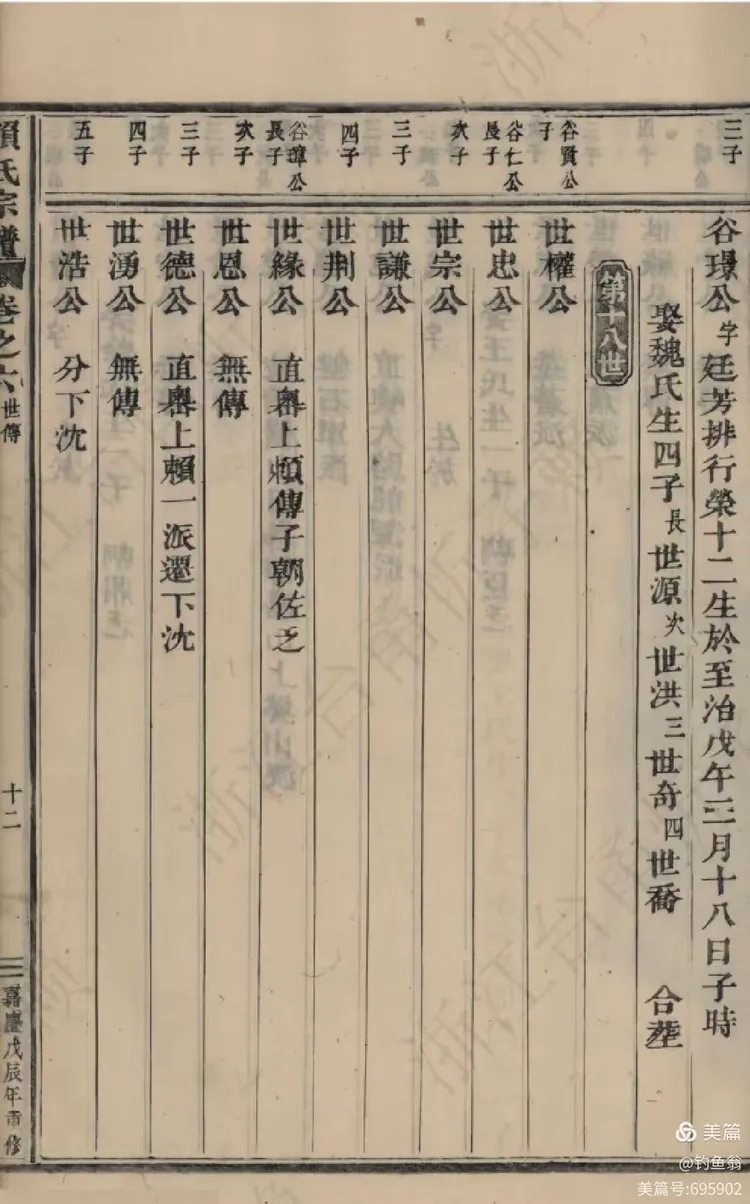 三子
谷璟公 字廷芳排行榮十二生於至治戊午三月十八日子時
娶魏氏生四子 長世源 次世洪 三世奇 四世喬 合塟
第十八世
谷賢公子
世權公
谷仁公長子
世忠公
次子
世宗公
三子
世謙公
四子
世荆公
谷璋公長子
世緣公 直轝上賴傳子朝佐之
次子
世恩公 無傳
三子
世德公 直轝上賴一派遷下沈
四子
世湧公 無傳
五子
世浩公 分下沈
賴氏宗譜 卷之六 世傳 十二 嘉慶戊辰年重修
美篇
@钓鱼翁
美篇号:695902